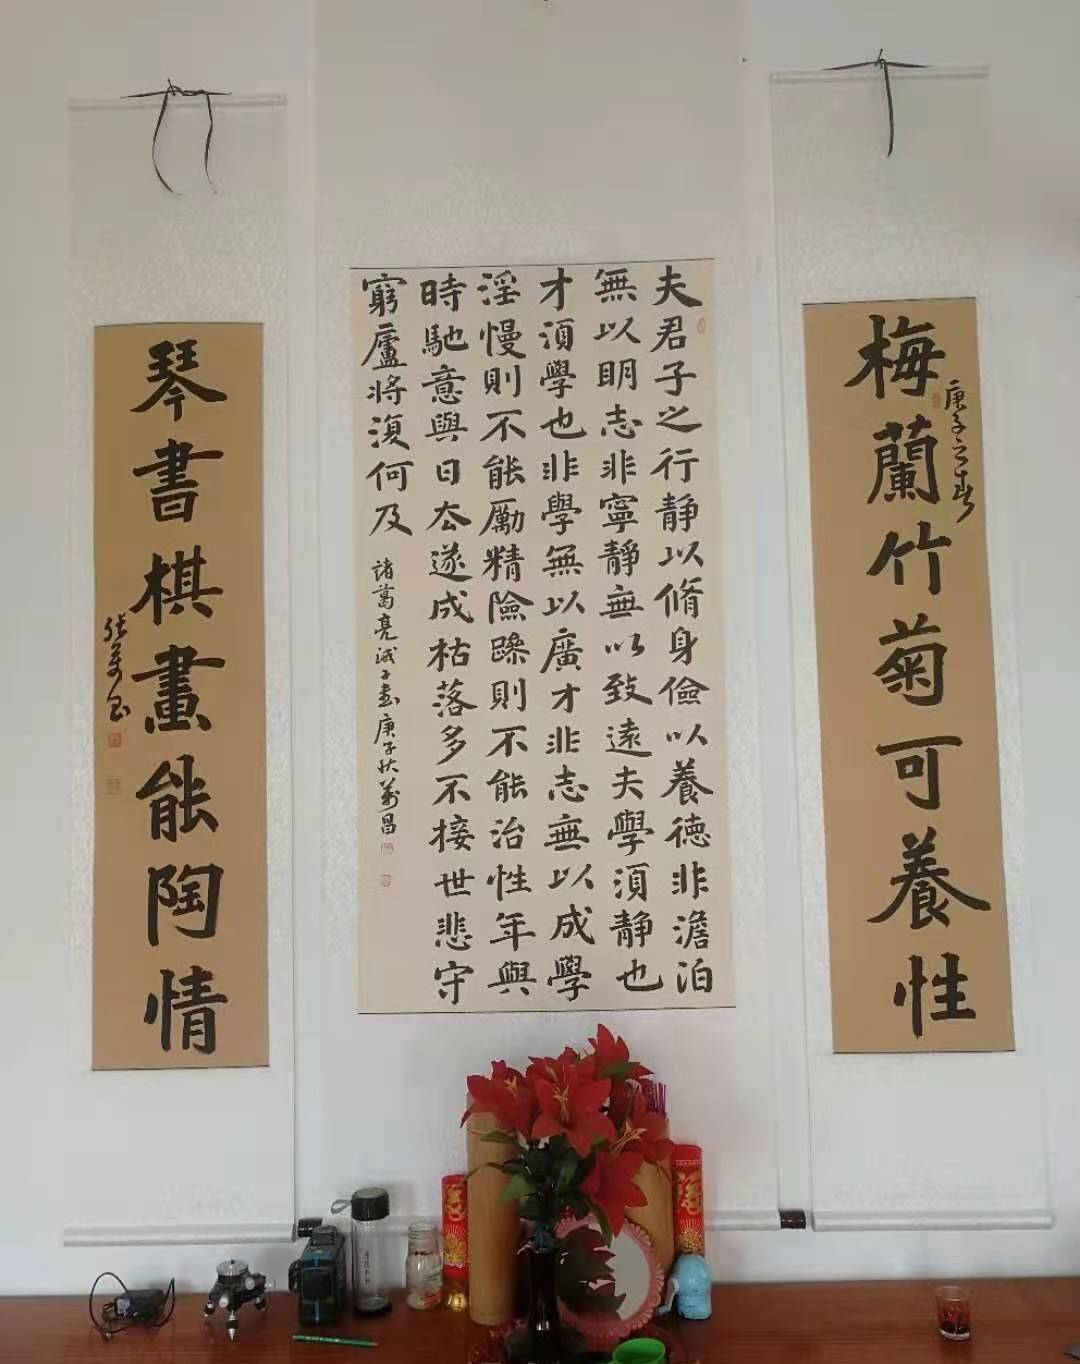 梅蘭竹菊可養性
庚子之春
夫君子之行靜以脩身儉以養德非澹泊
無以明志非寧靜無以致遠夫學須靜也
才須學也非學無以廣才非志無以成學
淫慢則不能勵精險躁則不能治性年與
時馳意與日去遂成枯落多不接世悲守
窮廬將復何及
諸葛亮誡子書庚子秋萬昌
琴書棋畫能陶情